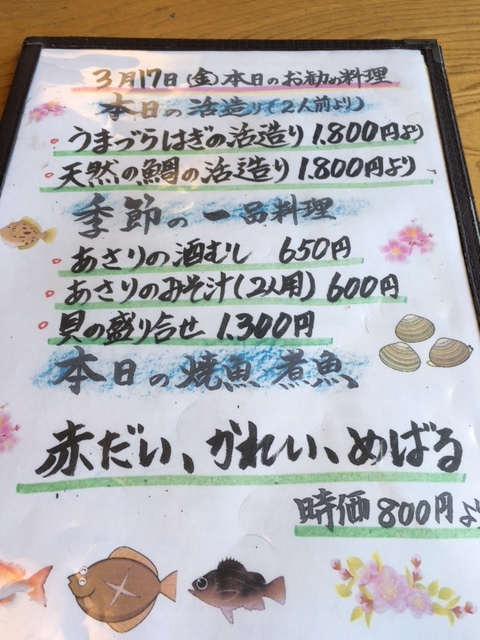 3月17日(金)本日のお勧め料理
本日の活造り(2人前より)
うまづらはぎの活造り 1.800円より
天然の鯛の活造り 1.800円より
季節の一品料理
あさりの酒むし 650円
あさりのみそ汁(2人用) 600円
貝の盛り合せ 1.300円
本日の焼魚 煮魚
赤だい、かれい、めばる
時価800円よ